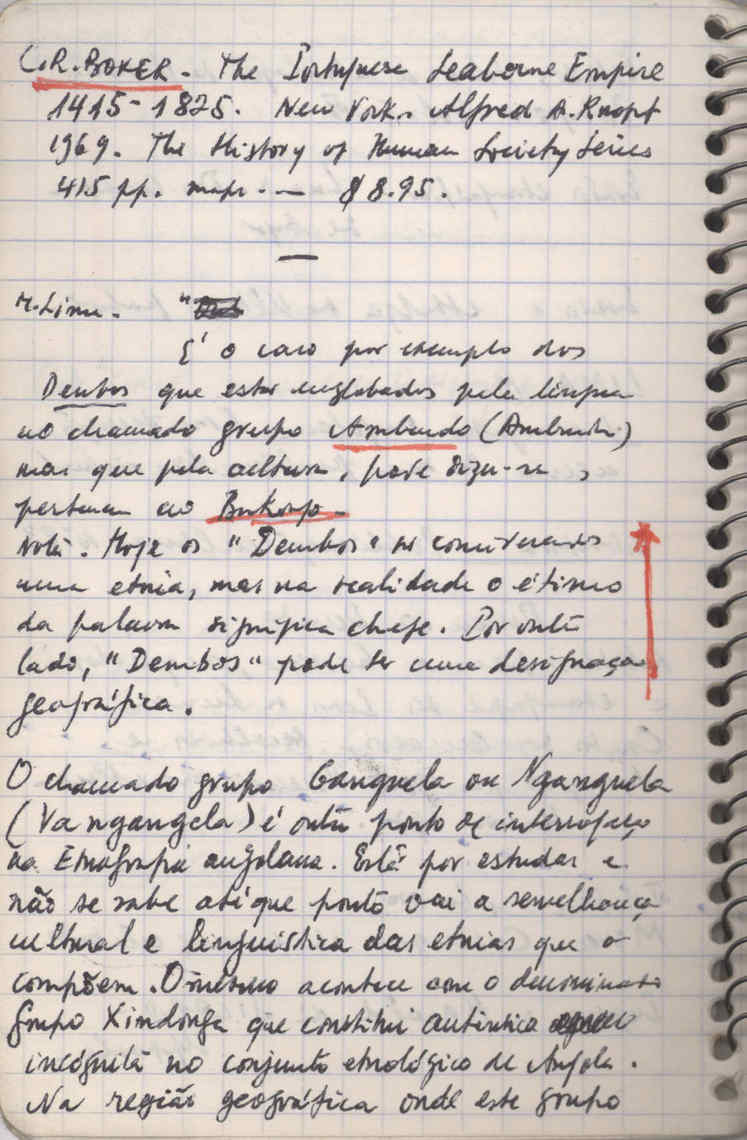 C.R. BOXER. The Portuguese Seaborne Empire
1415-1825. New York. Alfred A. Knopf
1969. The History of Human Society Series
415 pp. maps. — $8.95.
—
M. Lima. "
É o caso por exemplo dos
Dembos que estar englobados pela língua
no chamado grupo Ambundo (Ambundu)
mas que pela cultura, pode dizer-se,
pertencem ao Bakongo.
Nota. Hoje os "Dembos" se
uma etnia, mas na realidade o étimo
da palavra significa chefe. Por outro
lado, "Dembos" pode ser uma designação
geográfica.
O chamado grupo Ganguela ou Nganguela
(Va ngangela) é outro ponto de interrogação
na Etnografia angolana. Está por estudar e
não se sabe até que ponto vai a semelhança
cultural e linguística das etnias que o
compõem. O mesmo acontece com o denominado
grupo Xindonga que constitui autêntica
incógnita no conjunto etnológico de Angola.
Na região geográfica onde este grupo